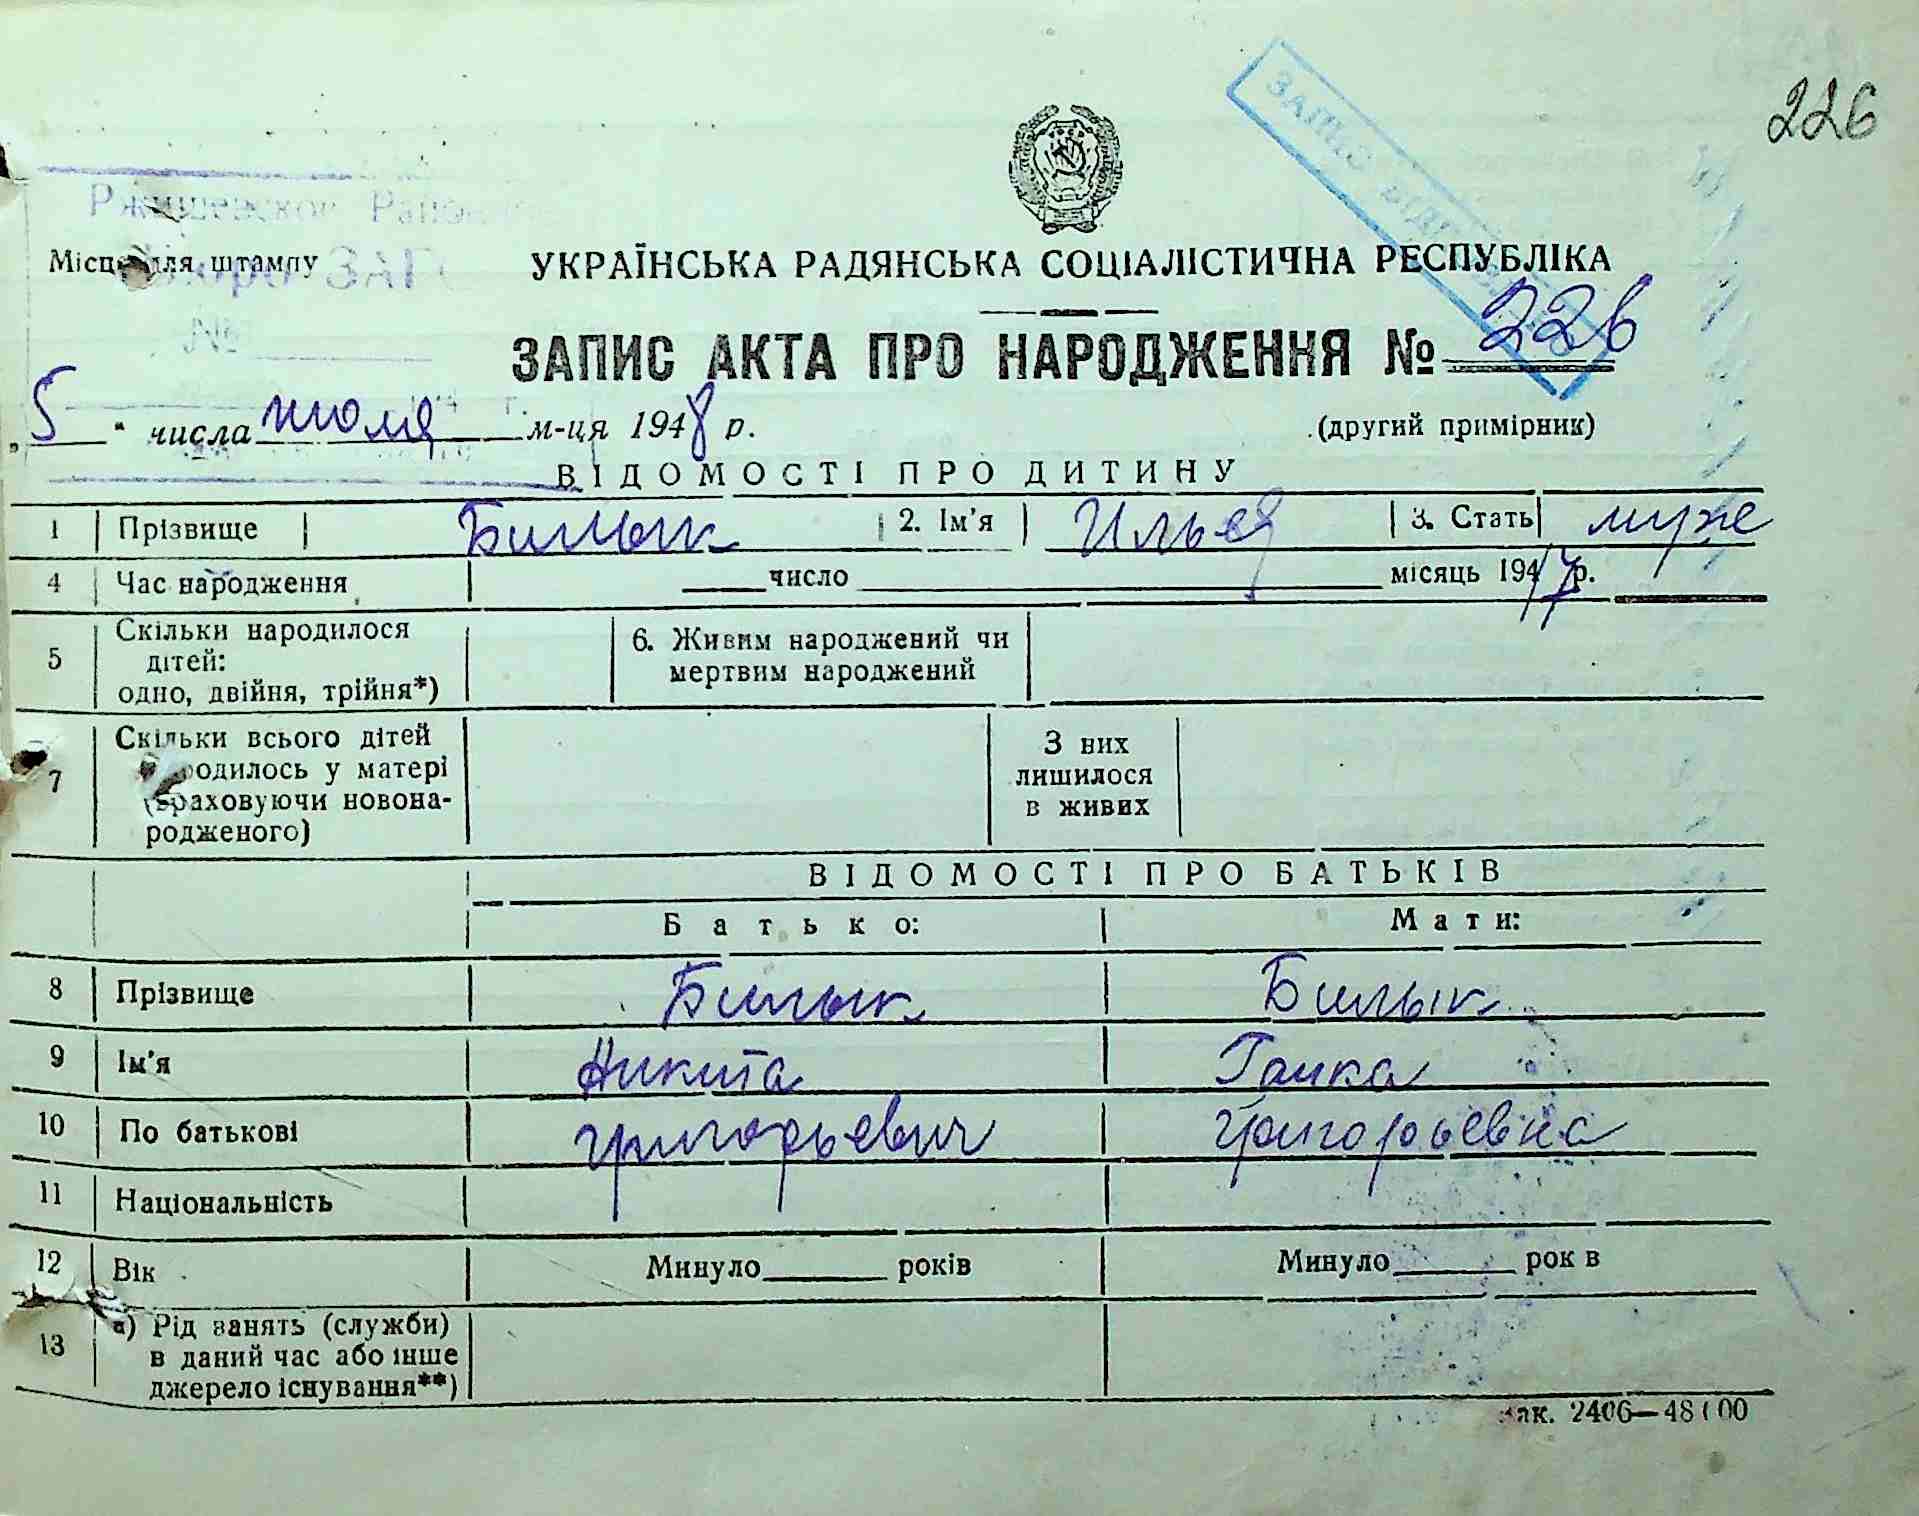 226
ЗАПИС ВІД
Ржищевское Район
Бюро ЗАГС
№
Місце для штампу
УКРАЇНСЬКА РАДЯНСЬКА СОЦІАЛІСТИЧНА РЕСПУБЛІКА
ЗАПИС АКТА ПРО НАРОДЖЕННЯ № 226
„5“ числа июля м-ця 1948 р.
(другий примірник)
ВІДОМОСТІ ПРО ДИТИНУ
1 Прізвище Билык 2. Ім'я Илья 3. Стать муже
4 Час народження число місяць 1947 р.
5 Скільки народилося
дітей:
одно, двійня, трійня*)
6. Живим народжений чи
мертвим народжений
7 Скільки всього дітей
народилось у матері
(враховуючи новона-
родженого)
З них
лишилося
в живих
ВІДОМОСТІ ПРО БАТЬКІВ
Батько: Мати:
8 Прізвище Билык Билык
9 Ім'я Никита Ганка
10 По батькові Григорьевич Григорьевна
11 Національність
12 Вік Минуло років Минуло рок в
13 а) Рід занять (служби)
в даний час або інше
джерело існування**)
Зак. 2406—48 г. 00